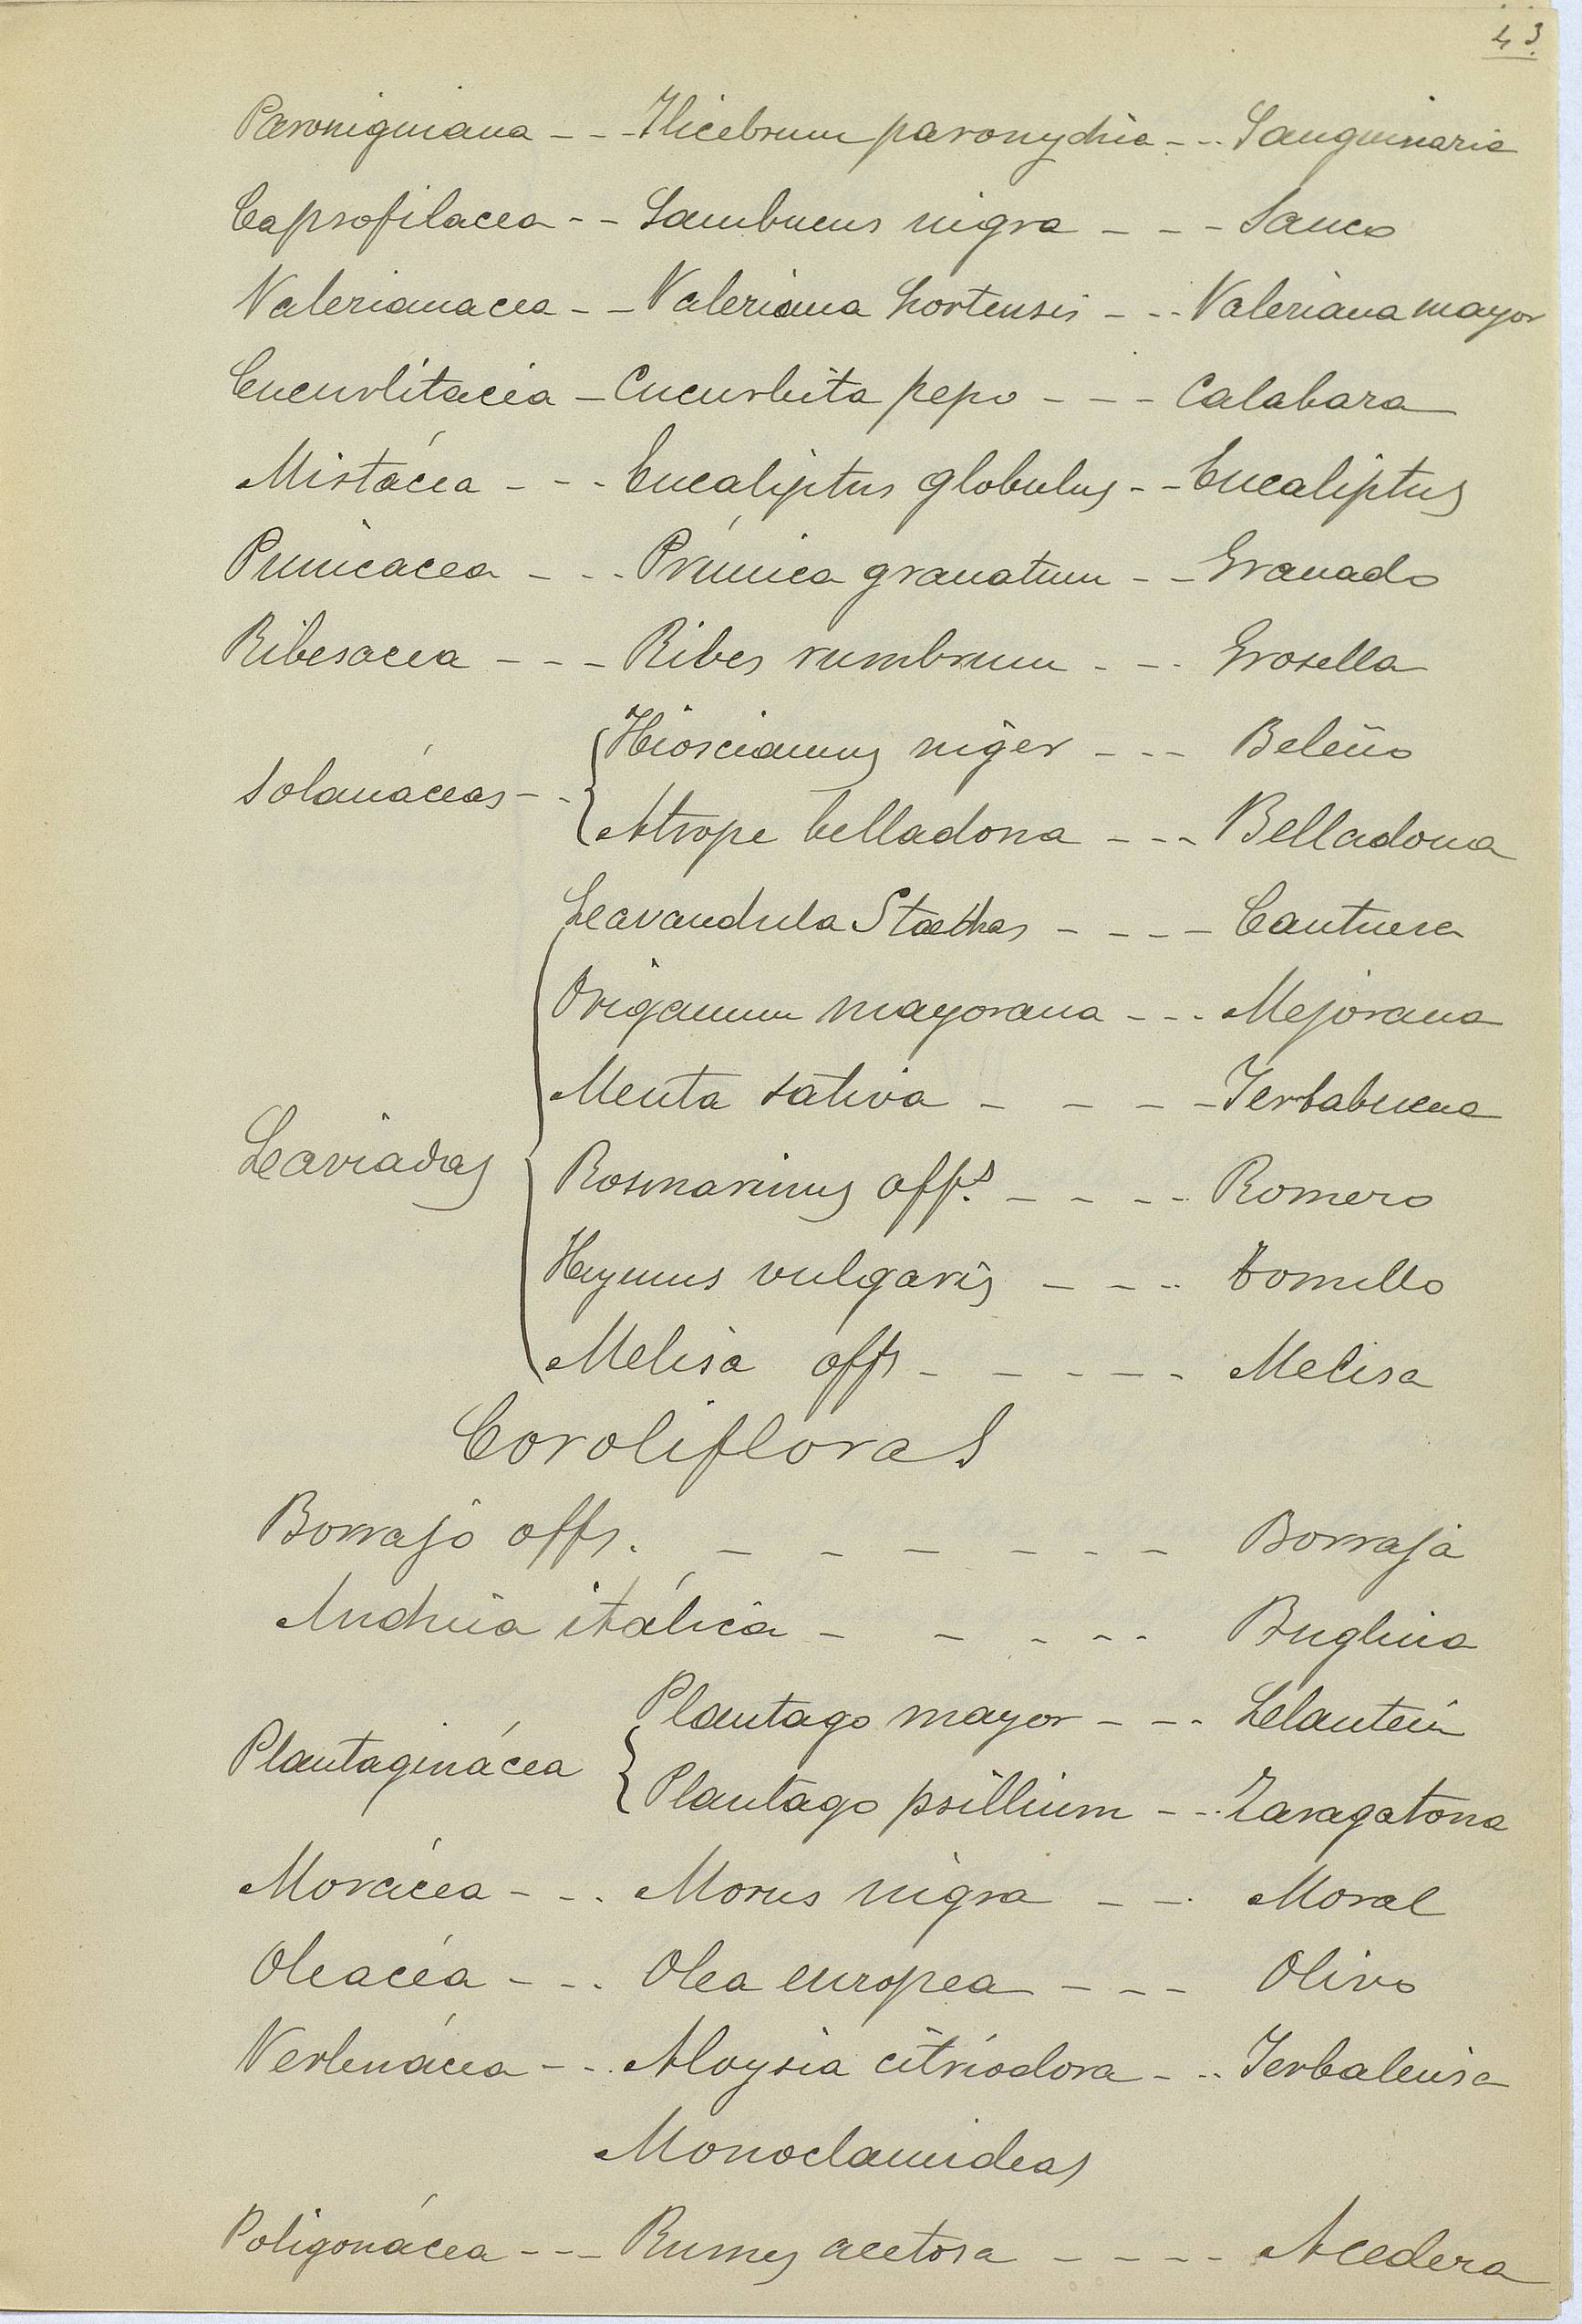 43.
Paroniquiana - - - Ilicebrum paronychia - - - Sanguinaria
Caprofilacea - - Sambucus nigra - - - Sauco
Valerianacea - - Valeriana hortensis - - - Valeriana mayor
Cucurlitacéa - Cucurbita pepo - - - Calabara
Mistácea - - - Eucaliptus globulus - - Eucaliptus
Punicacea - - - Prúnica granatum - - Granado
Ribesacea - - - Ribes rumbrum - - - Grosella
Solanáceas - - Hiosciamus niger - - - Beleño
Atrope belladona - - - Belladona
Lavandula Staethas - - - - Cantuesa
Origanum mayorana - - - Mejorana
Menta sativa - - - - Ierbabuena
Laviadas Rosmarinus offs. - - - - Romero
Hymus vulgaris - - - - Tomillo
Melisa offs - - - - - Melisa
Corolifloras
Borrajo offs. - - - - - - - Borraja
Anchuia itálica - - - - - Buglusa
Plantaginácea Plantago mayor - - - Llantein
Plantago psillium - - - Zaragatona
Morácea - - - Morus nigra - - - Moral
Oleacéa - - - Olea europea - - - Olivo
Verbenácea - - - Aloysia citriodora - - - Ierbaluisa
Monoclamideas
Poligonácea - - - Rumex acetosa - - - - Acedera